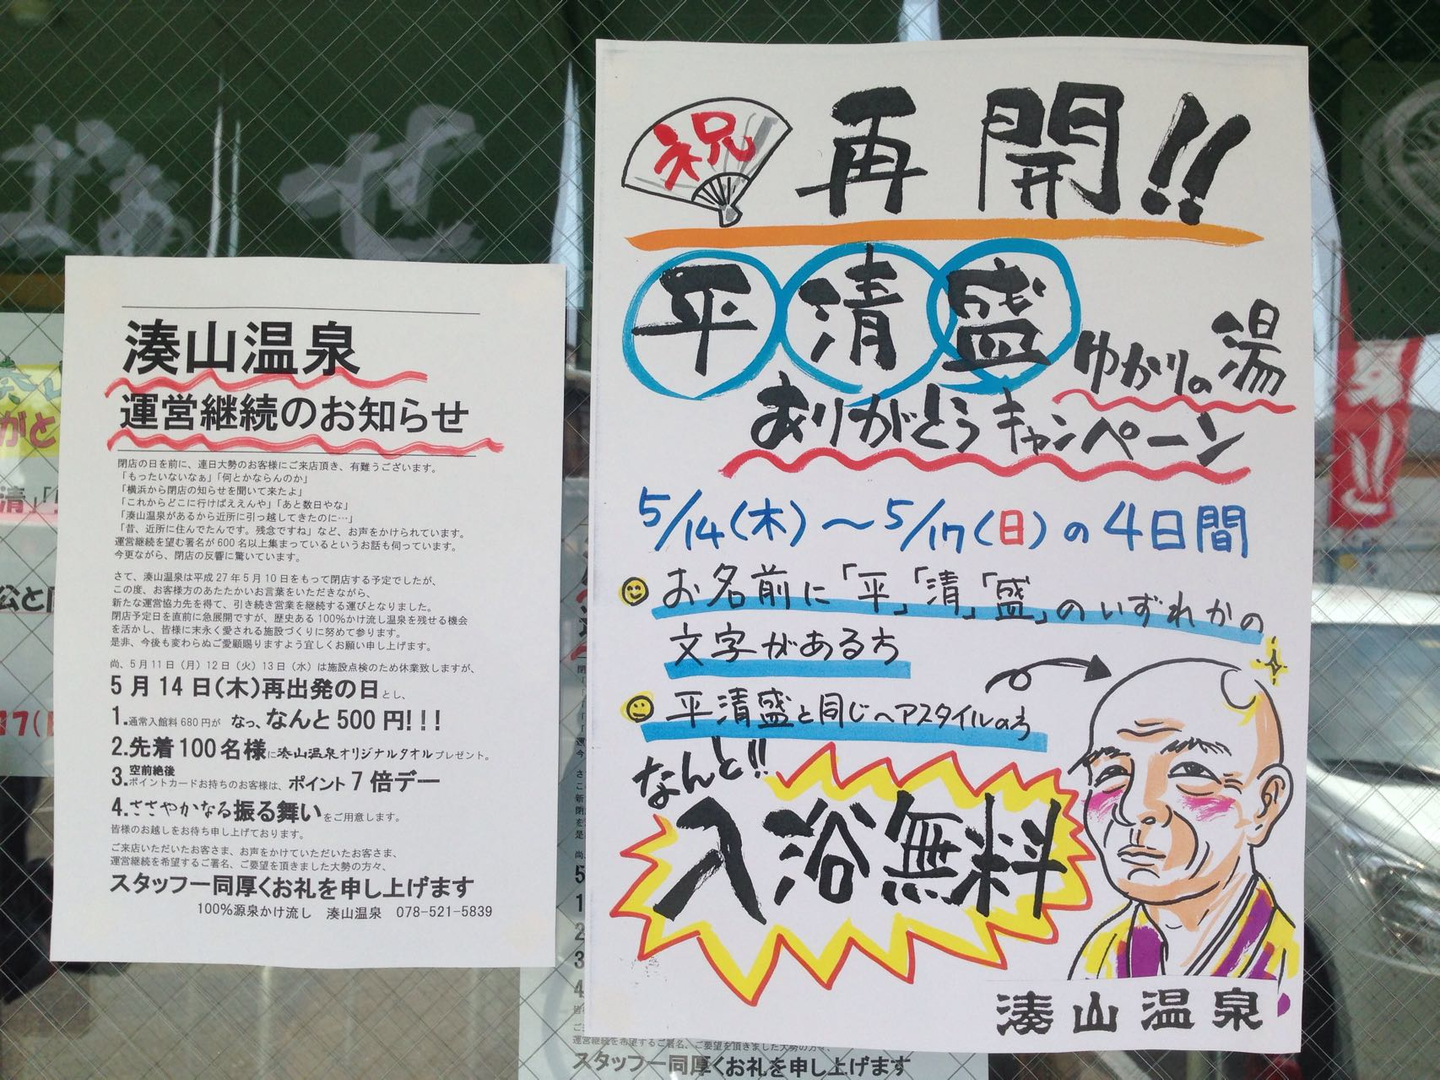 湊山温泉
運営継続のお知らせ
閉店の日を前に、連日大勢のお客様にご来店頂き、有難うございます。
「もったいないなぁ」「何とかならんのか」
「横浜から閉店の知らせを聞いて来たよ」
「これからどこに行けばええんや」「あと数日やな」
「湊山温泉があるから近所に引っ越してきたのに…」
「昔、近所に住んでたんです。残念ですね」など、お声をかけられています。
運営継続を望む署名が600名以上集まっているというお話も伺っています。
今更ながら、閉店の反響に驚いています。
さて、湊山温泉は平成27年5月10日をもって閉店する予定でしたが、
この度、お客様方のあたたかいお言葉をいただきながら、
新たな運営協力先を得て、引き続き営業を継続する運びとなりました。
閉店予定日を直前に急展開ですが、歴史ある100%かけ流し温泉を残せる機会
を活かし、皆様に末永く愛される施設づくりに努めて参ります。
是非、今後も変わらぬご愛顧賜りますよう宜しくお願い申し上げます。
尚、5月11日（月）12日（火）13日（水）は施設点検のため休業致しますが、
5月14日（木）再出発の日とし、
1.通常入館料680円が なっ、なんと500円!!!
2.先着100名様に湊山温泉オリジナルタオルプレゼント。
3.空前絶後
ポイントカードお持ちのお客様は、ポイント7倍デー
4.ささやかなる振る舞いをご用意します。
皆様のお越しをお待ち申し上げております。
ご来店いただいたお客さま、お声をかけていただいたお客さま、
運営継続を希望するご署名、ご要望を頂きました大勢の方々、
スタッフ一同厚くお礼を申し上げます
100%源泉かけ流し 湊山温泉 078-521-5839
祝
再開!!
平清盛ゆかりの湯
ありがとうキャンペーン
5/14(木)～5/17(日)の4日間
お名前に「平」「清」「盛」のいずれかの
文字がある方
平清盛と同じヘアスタイルの方
なんと!!
入浴無料
湊山温泉
運営継続を希望するご署名、ご要望を頂きました大勢の方々、
スタッフ一同厚くお礼を申し上げます